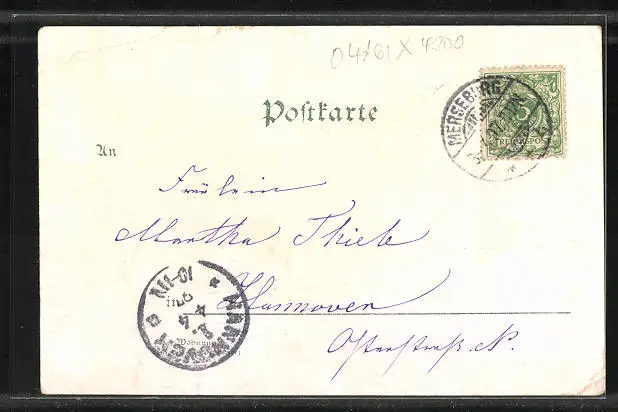 04761 X 4200
MERSEBURG
5
REICHSPOST
Postkarte
An
Fräulein
Martha Thiele
HANNOVER
Hannover
Wohnung
Osterstraße